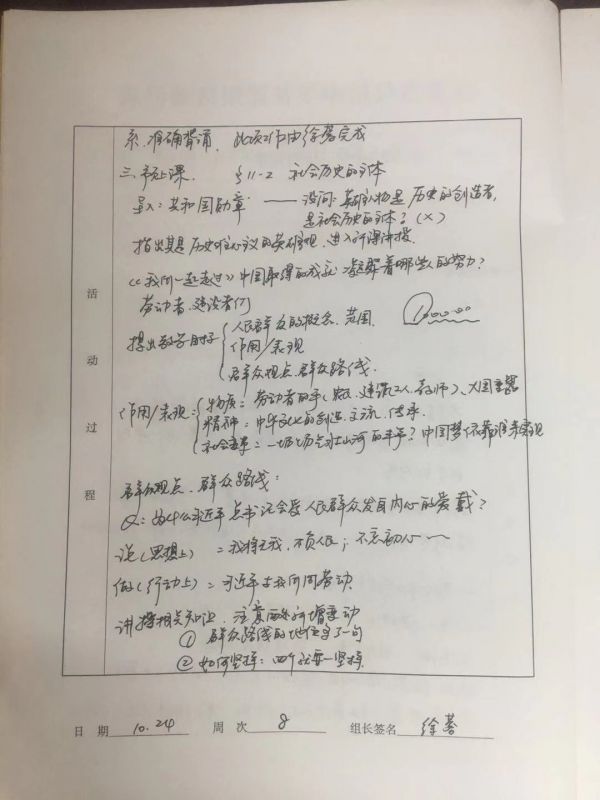 系,准确背诵,此项工作由徐蓉完成
三、市上课. §11-2 社会历史的主体
导入:共和国勋章 —— 设问:英雄人物是历史的创造者,
是社会历史的主体?(×)
指出其是历史唯心主义的英雄史观,进入新课讲授.
《我们一起走过》中国取得的成就凝聚着哪些人的努力?
劳动者、建设者们
提出教学目标
人民群众的概念、范围.
作用/表现
群众观点、群众路线.
作用/表现:
物质:劳动者的手(农民、建筑工人、教师)、大国重器
精神:中华文化的创造、交流、传承.
社会变革:一场场气壮山河的斗争?中国梦依靠谁来实现
群众观点、群众路线:
Q:为什么习近平总书记会受人民群众发自内心的爱戴?
说(思想上):我将无我,不负人民;不忘初心~
做(行动上):习近平去我们间劳动.
讲授相关知识,注意两处新增变动
① 群众路线的地位多了一句
② 如何坚持:四个就要一坚持.
活动过程
日 期 10.24 周 次 8 组长签名 徐蓉